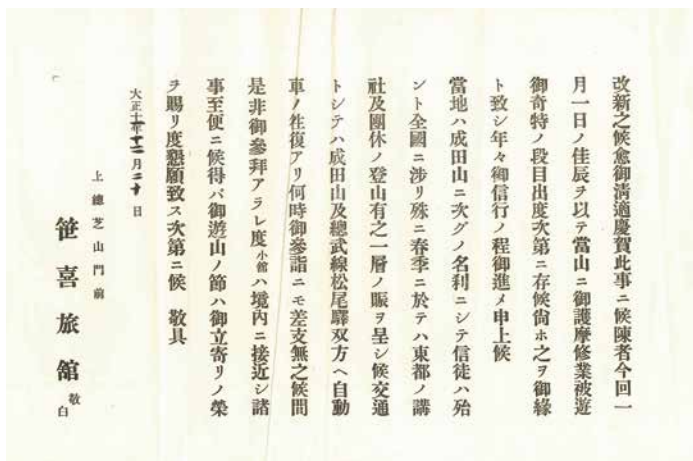 改新之候愈御淸適慶賀此事ニ候陳者今回一
月一日ノ佳辰ヲ以テ當山ニ御護摩修業被遊
御奇特ノ段目出度次第ニ存候尙ホ之ヲ御緣
ト致シ年々御信行ノ程御進メ申上候
當地ハ成田山ニ次グノ名刹ニシテ信徒ハ殆
ント全國ニ涉リ殊ニ春季ニ於テハ東都ノ講
社及團休ノ登山有之一層ノ賑ヲ呈シ候交通
トシテハ成田山及總武線松尾驛双方ヘ自動
車ノ徃復アリ何時御參詣ニモ差支無之候間
是非御參拜アラレ度小舘ハ境內ニ接近シ諸
事至便ニ候得バ御遊山ノ節ハ御立寄リノ榮
ヲ賜リ度懇願致ス次第ニ候 敬具
大正十一年十二月二十日
上總芝山門前
笹喜旅舘 敬白